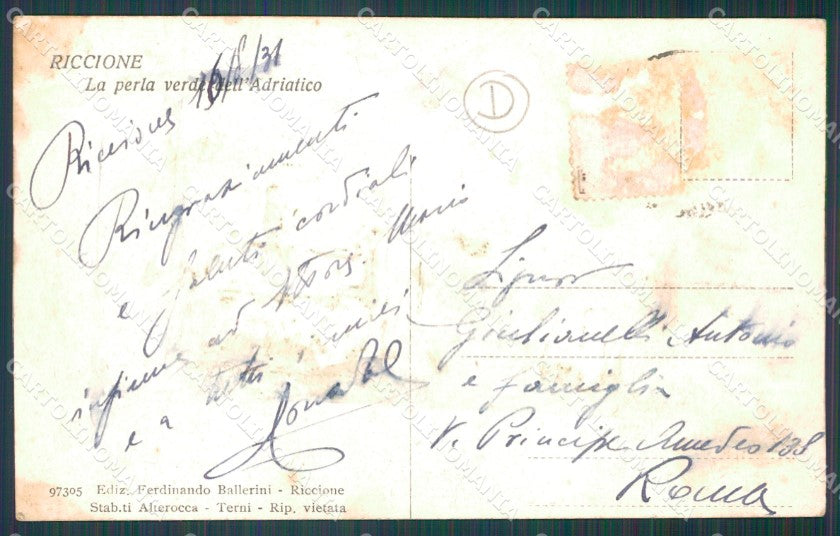 RICCIONE
La perla verde dell'Adriatico
Riccione 16/8/31
Ringraziamenti
e saluti cordiali
insieme ad Ettore Mario
e a tutti i miei
D
Signor
Giulianelli Antonio
e famiglia
V. Principe Amedeo 138
Roma
97305 Ediz. Ferdinando Ballerini - Riccione
Stab.ti Alterocca - Terni - Rip. vietata
CARTOLINOMANIA